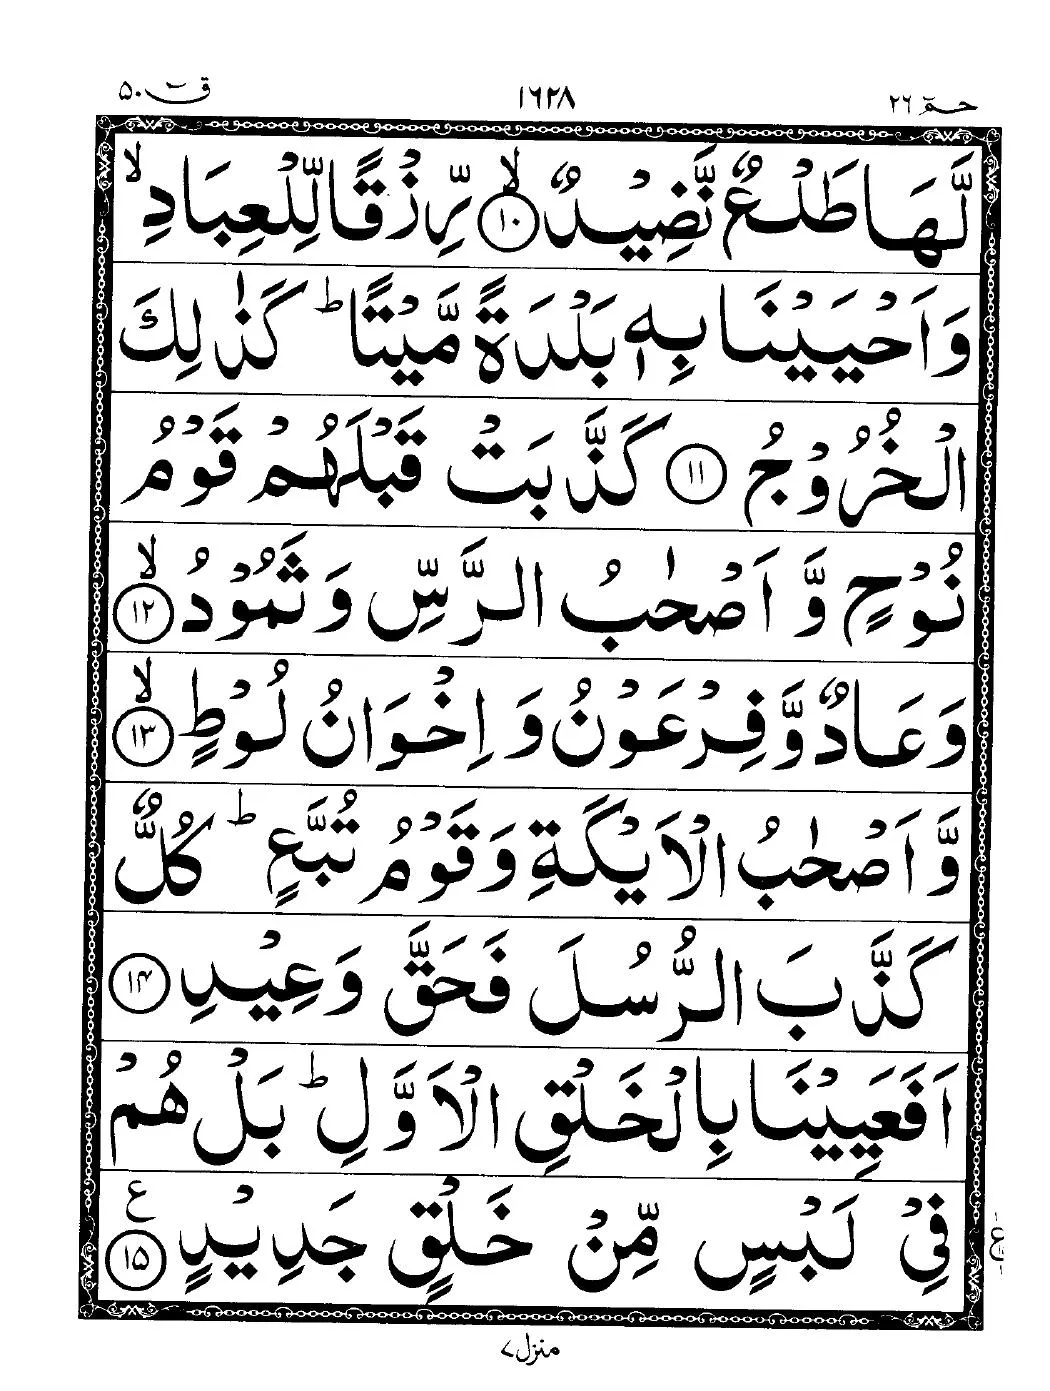 حٰمٓ ٢٦ ١٦٢٨ قٓ ٥٠
لَّهَا طَلْعٌ نَّضِيْدٌ ۙ‏ ﴿١٠﴾ رِّزْقًا لِّلْعِبَادِ ۙ
وَاَحْيَيْنَا بِهٖ بَلْدَةً مَّيْتًا ؕ كَذٰلِكَ
الْخُرُوْجُ ﴿١١﴾ كَذَّبَتْ قَبْلَهُمْ قَوْمُ
نُوْحٍ وَّ اَصْحٰبُ الرَّسِّ وَ ثَمُوْدُ ۙ ﴿١٢﴾
وَ عَادٌ وَّ فِرْعَوْنُ وَ اِخْوَانُ لُوْطٍ ۙ ﴿١٣﴾
وَّ اَصْحٰبُ الْاَيْكَةِ وَ قَوْمُ تُبَّعٍ ؕ كُلٌّ
كَذَّبَ الرُّسُلَ فَحَقَّ وَعِيْدِ ﴿١٤﴾
اَفَعَيِيْنَا بِالْخَلْقِ الْاَوَّلِ ؕ بَلْ هُمْ
فِيْ لَبْسٍ مِّنْ خَلْقٍ جَدِيْدٍ ﴿١٥﴾ ع
منزل ٧